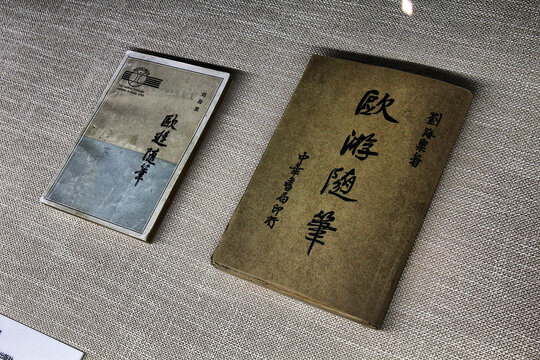 劉海粟
歐遊隨筆
劉海粟著
歐游隨筆
中華書局印行